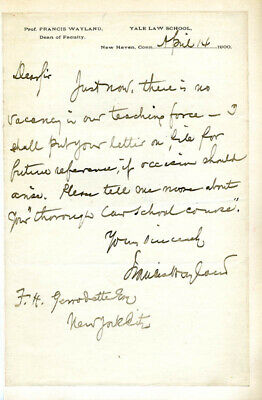 Prof. FRANCIS WAYLAND, YALE LAW SCHOOL,
Dean of Faculty.
New Haven, Conn. April 14 1900.
Dear Sir
Just now, there is no
vacancy in our teaching force – I
shall put your letter on file for
future reference, if occasion should
arise. Please tell me more about
your "thorough Law School course".
Yours Sincerely
Francis Wayland
F. H. Gerrodette Esq
New York City